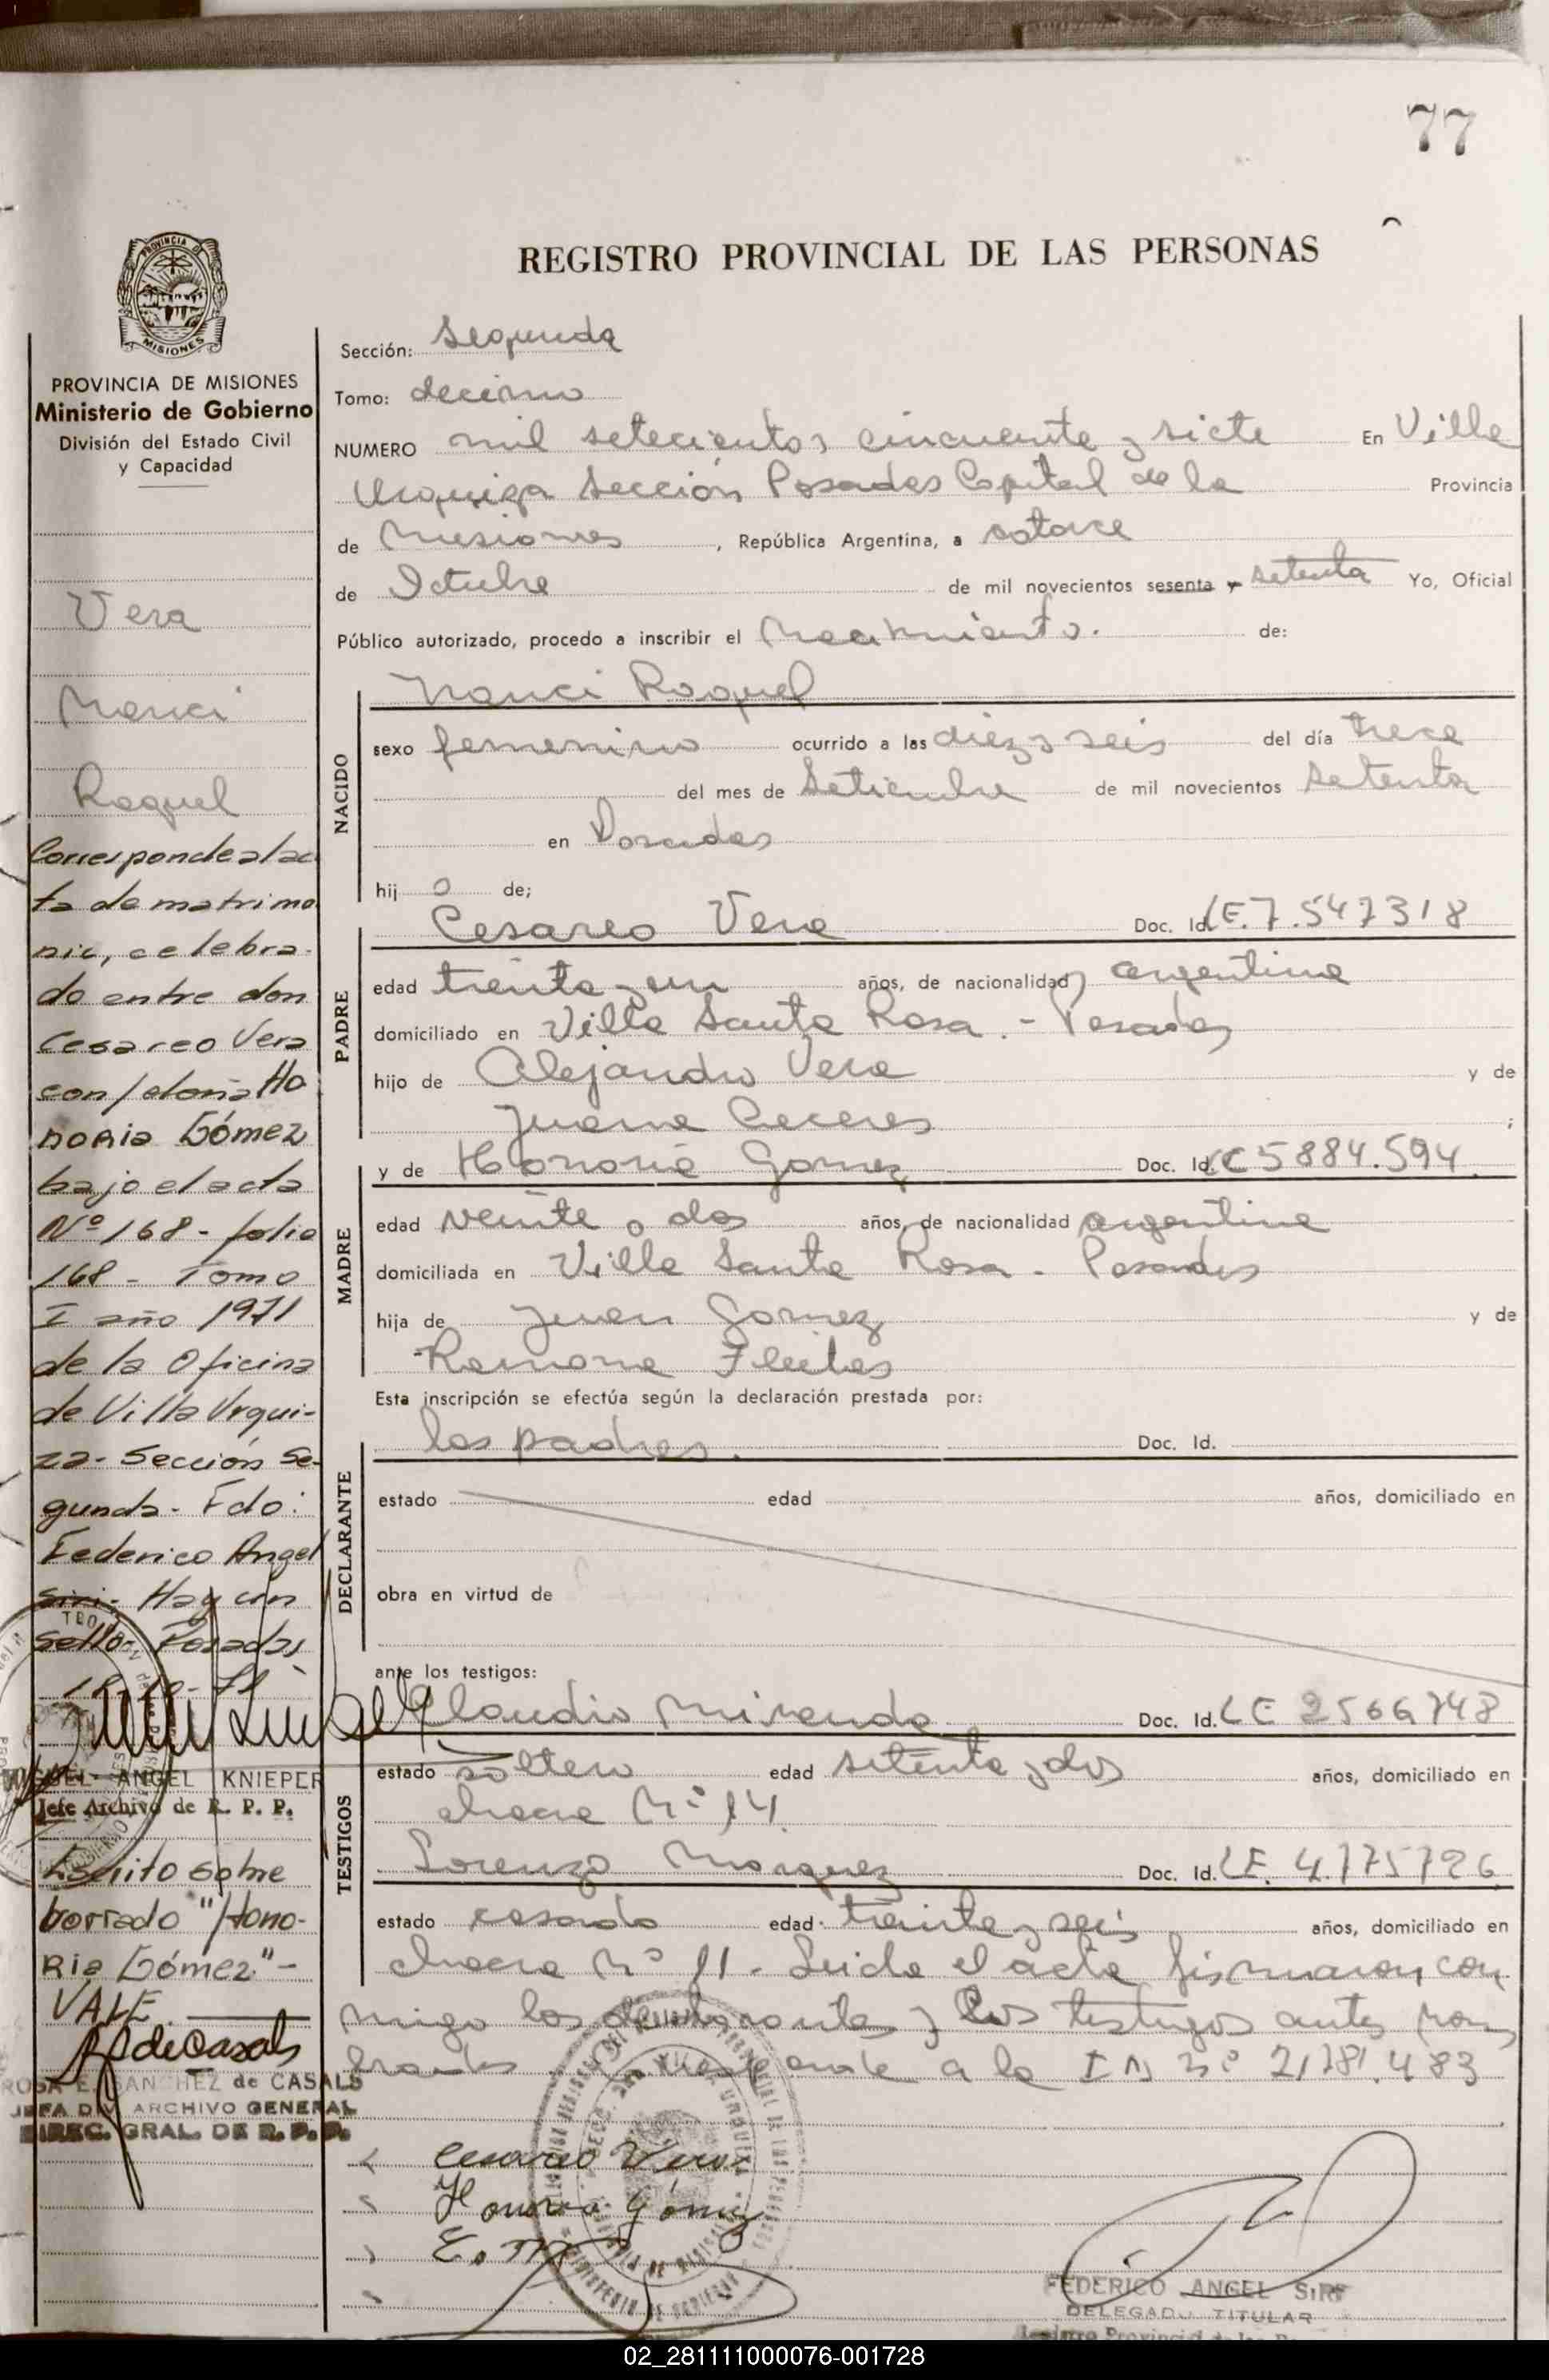 77
REGISTRO PROVINCIAL DE LAS PERSONAS
PROVINCIA DE MISIONES
Ministerio de Gobierno
División del Estado Civil
y Capacidad
Vera
Nanci
Raquel
Corresponde al ac
ta de matrimo
nio, celebra-
do entre don
Cesareo Vera
con/doña Ho
noria Gómez
bajo el acta
Nº 168 - folio
168 - Tomo
I año 1971
de la Oficina
de Villa Urqui-
za - Sección Se-
gunda - Fdo:
Federico Angel
Siri - Hay un
Sello - Posadas
MIGUEL ANGEL KNIEPER
Jefe Archivo de R. P. P.
Escrito sobre
borrado "Hono-
Ria Gómez" -
VALE
ROSA E. SANCHEZ de CASALS
JEFA DIV. ARCHIVO GENERAL
DIREC. GRAL. DE R. P. P.
Sección: Segunda
Tomo: decimo
NUMERO mil setecientos cincuenta y siete En Villa
Urquiza Sección Posadas Capital de la Provincia
de Misiones, República Argentina, a catorce
de Octubre de mil novecientos sesenta y setenta Yo, Oficial
Público autorizado, procedo a inscribir el Nacimiento. de:
NACIDO
Nanci Raquel
sexo femenino ocurrido a las diez y seis del día trece
del mes de Setiembre de mil novecientos setenta
en Posadas
hij a de;
PADRE
Cesareo Vera Doc. Id. LE. 7.547318
edad treinta y un años, de nacionalidad argentina
domiciliado en Villa Santa Rosa. - Posadas
hijo de Alejandro Vera y de
Juana Caceres ;
MADRE
y de Honoria Gomez Doc. Id. LC 5884.594
edad veinte o dos años, de nacionalidad argentina
domiciliada en Villa Santa Rosa - Posadas
hija de Juan Gomez y de
Ramona Fleitas
Esta inscripción se efectúa según la declaración prestada por:
DECLARANTE
los padres. Doc. Id.
estado edad años, domiciliado en
obra en virtud de
ante los testigos:
TESTIGOS
Claudio Miranda Doc. Id. LE 2566748
estado soltero edad setenta y dos años, domiciliado en
chacra Nº 14
Lorenzo Marquez Doc. Id. LE. 4.175726
estado casado edad treinta y seis años, domiciliado en
chacra Nº 11. Leida el acta firmaron con
migo los declarantes y los testigos antes nom
brados. Corresponde a la I N Nº 21781.483
Cesareo Vera
Honoria Gómez
FEDERICO ANGEL SIRI
DELEGADO TITULAR
02_281111000076-001728